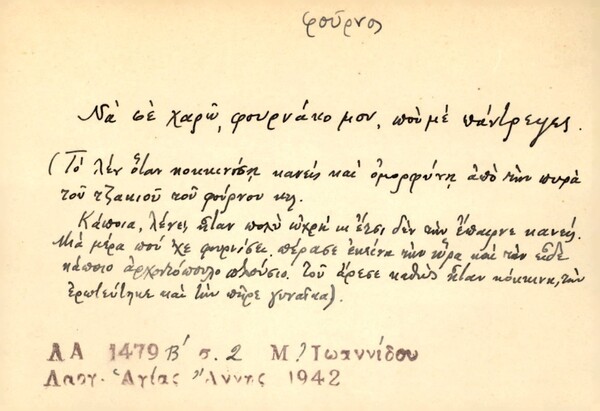 φοῦρνος
Νά σέ χαρῶ, φουρνάκο μου, πού μέ πάντρεψες.
(Τό λέν ὅταν κοκκινίσῃ κανείς καί ὀμορφύνῃ ἀπό τήν πυρά
τοῦ τζακιοῦ τοῦ φούρνου κλ.
Κάποια, λένε, ἦταν πολύ ὠχρή κι ἔτσι δέν τήν ἔπαιρνε κανείς.
Μιά μέρα πού 'χε φουρνίσει, πέρασε ἐκείνη τήν ὥρα καί τήν εἶδε
κάποιο ἀρχοντόπουλο πλούσιο. Τοῦ ἄρεσε καθώς ἦταν κόκκινη, τήν
ἐρωτεύτηκε καί τήν πῆρε γυναῖκα).
ΛΑ 1479 Β' σ. 2 Μ. Ἰωαννίδου
Λαογ. Ἁγίας Ἄννης 1942